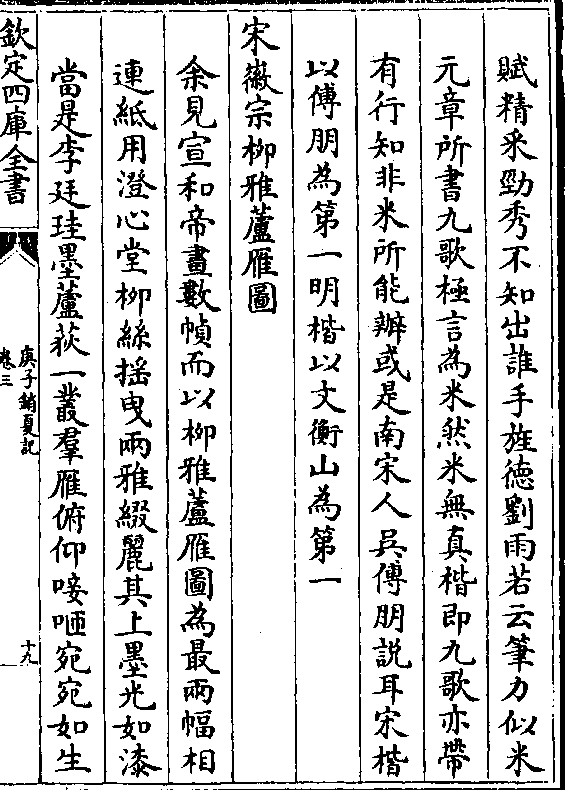 賦精采勁秀不知出誰手旌德劉雨若云筆力似米
元章所書九歌極言為米然米無真楷即九歌亦帶
有行知非米所能辦或是南宋人吳傅朋説耳宋楷
以傅朋為第一明楷以文衡山為第一
宋徽宗柳雅蘆雁圖
余見宣和帝畫數幀而以柳雅蘆雁圖為最兩幅相
連紙用澄心堂柳絲揺曳兩雅綴麗其上墨光如漆
當是李廷珪墨蘆荻一叢羣雁俯仰唼咂宛宛如生
欽定四庫全書
庚子銷夏記
卷三
十九